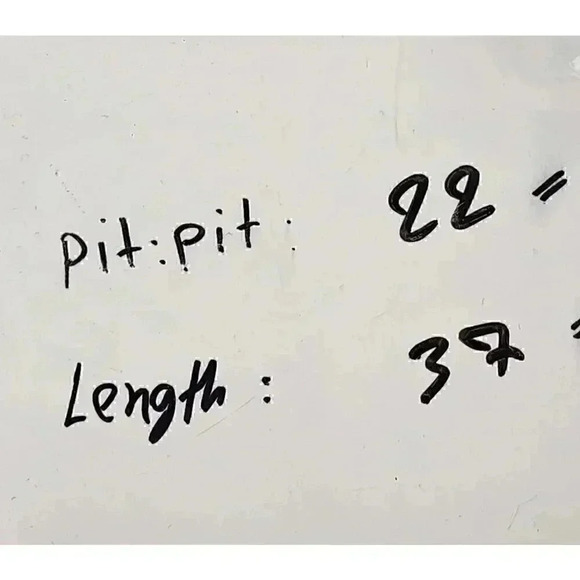 pit:pit: 22"
Length: 37"